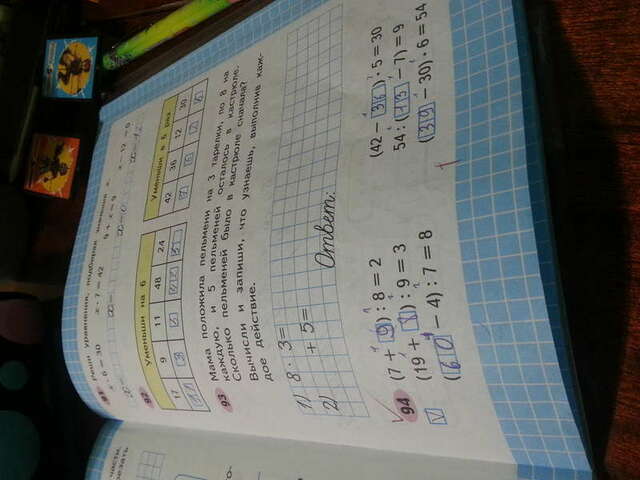 91 Реши уравнения, подбирая значения x.
x · 6 = 30 x · 7 = 42 9 + x = 9 x − 12 = 0
x= x= x=0 x=12
92 Уменьши на 6 Уменьши в 6 раз
17 9 11 48 24 42 36 12 30
11 3 42 7 6 2
93 Мама положила пельмени на 3 тарелки, по 8 на
каждую, и 5 пельменей осталось в кастрюле.
Сколько пельменей было в кастрюле сначала?
Вычисли и запиши, что узнаешь, выполнив каж-
дое действие.
1) 8 · 3=
2) + 5=
Ответ:
94 (7 + 9) : 8 = 2 (42 − 36) · 5 = 30
(19 + 8) : 9 = 3 54 : (13 − 7) = 9
(60 − 4) : 7 = 8 (39 − 30) · 6 = 54
части.
резать